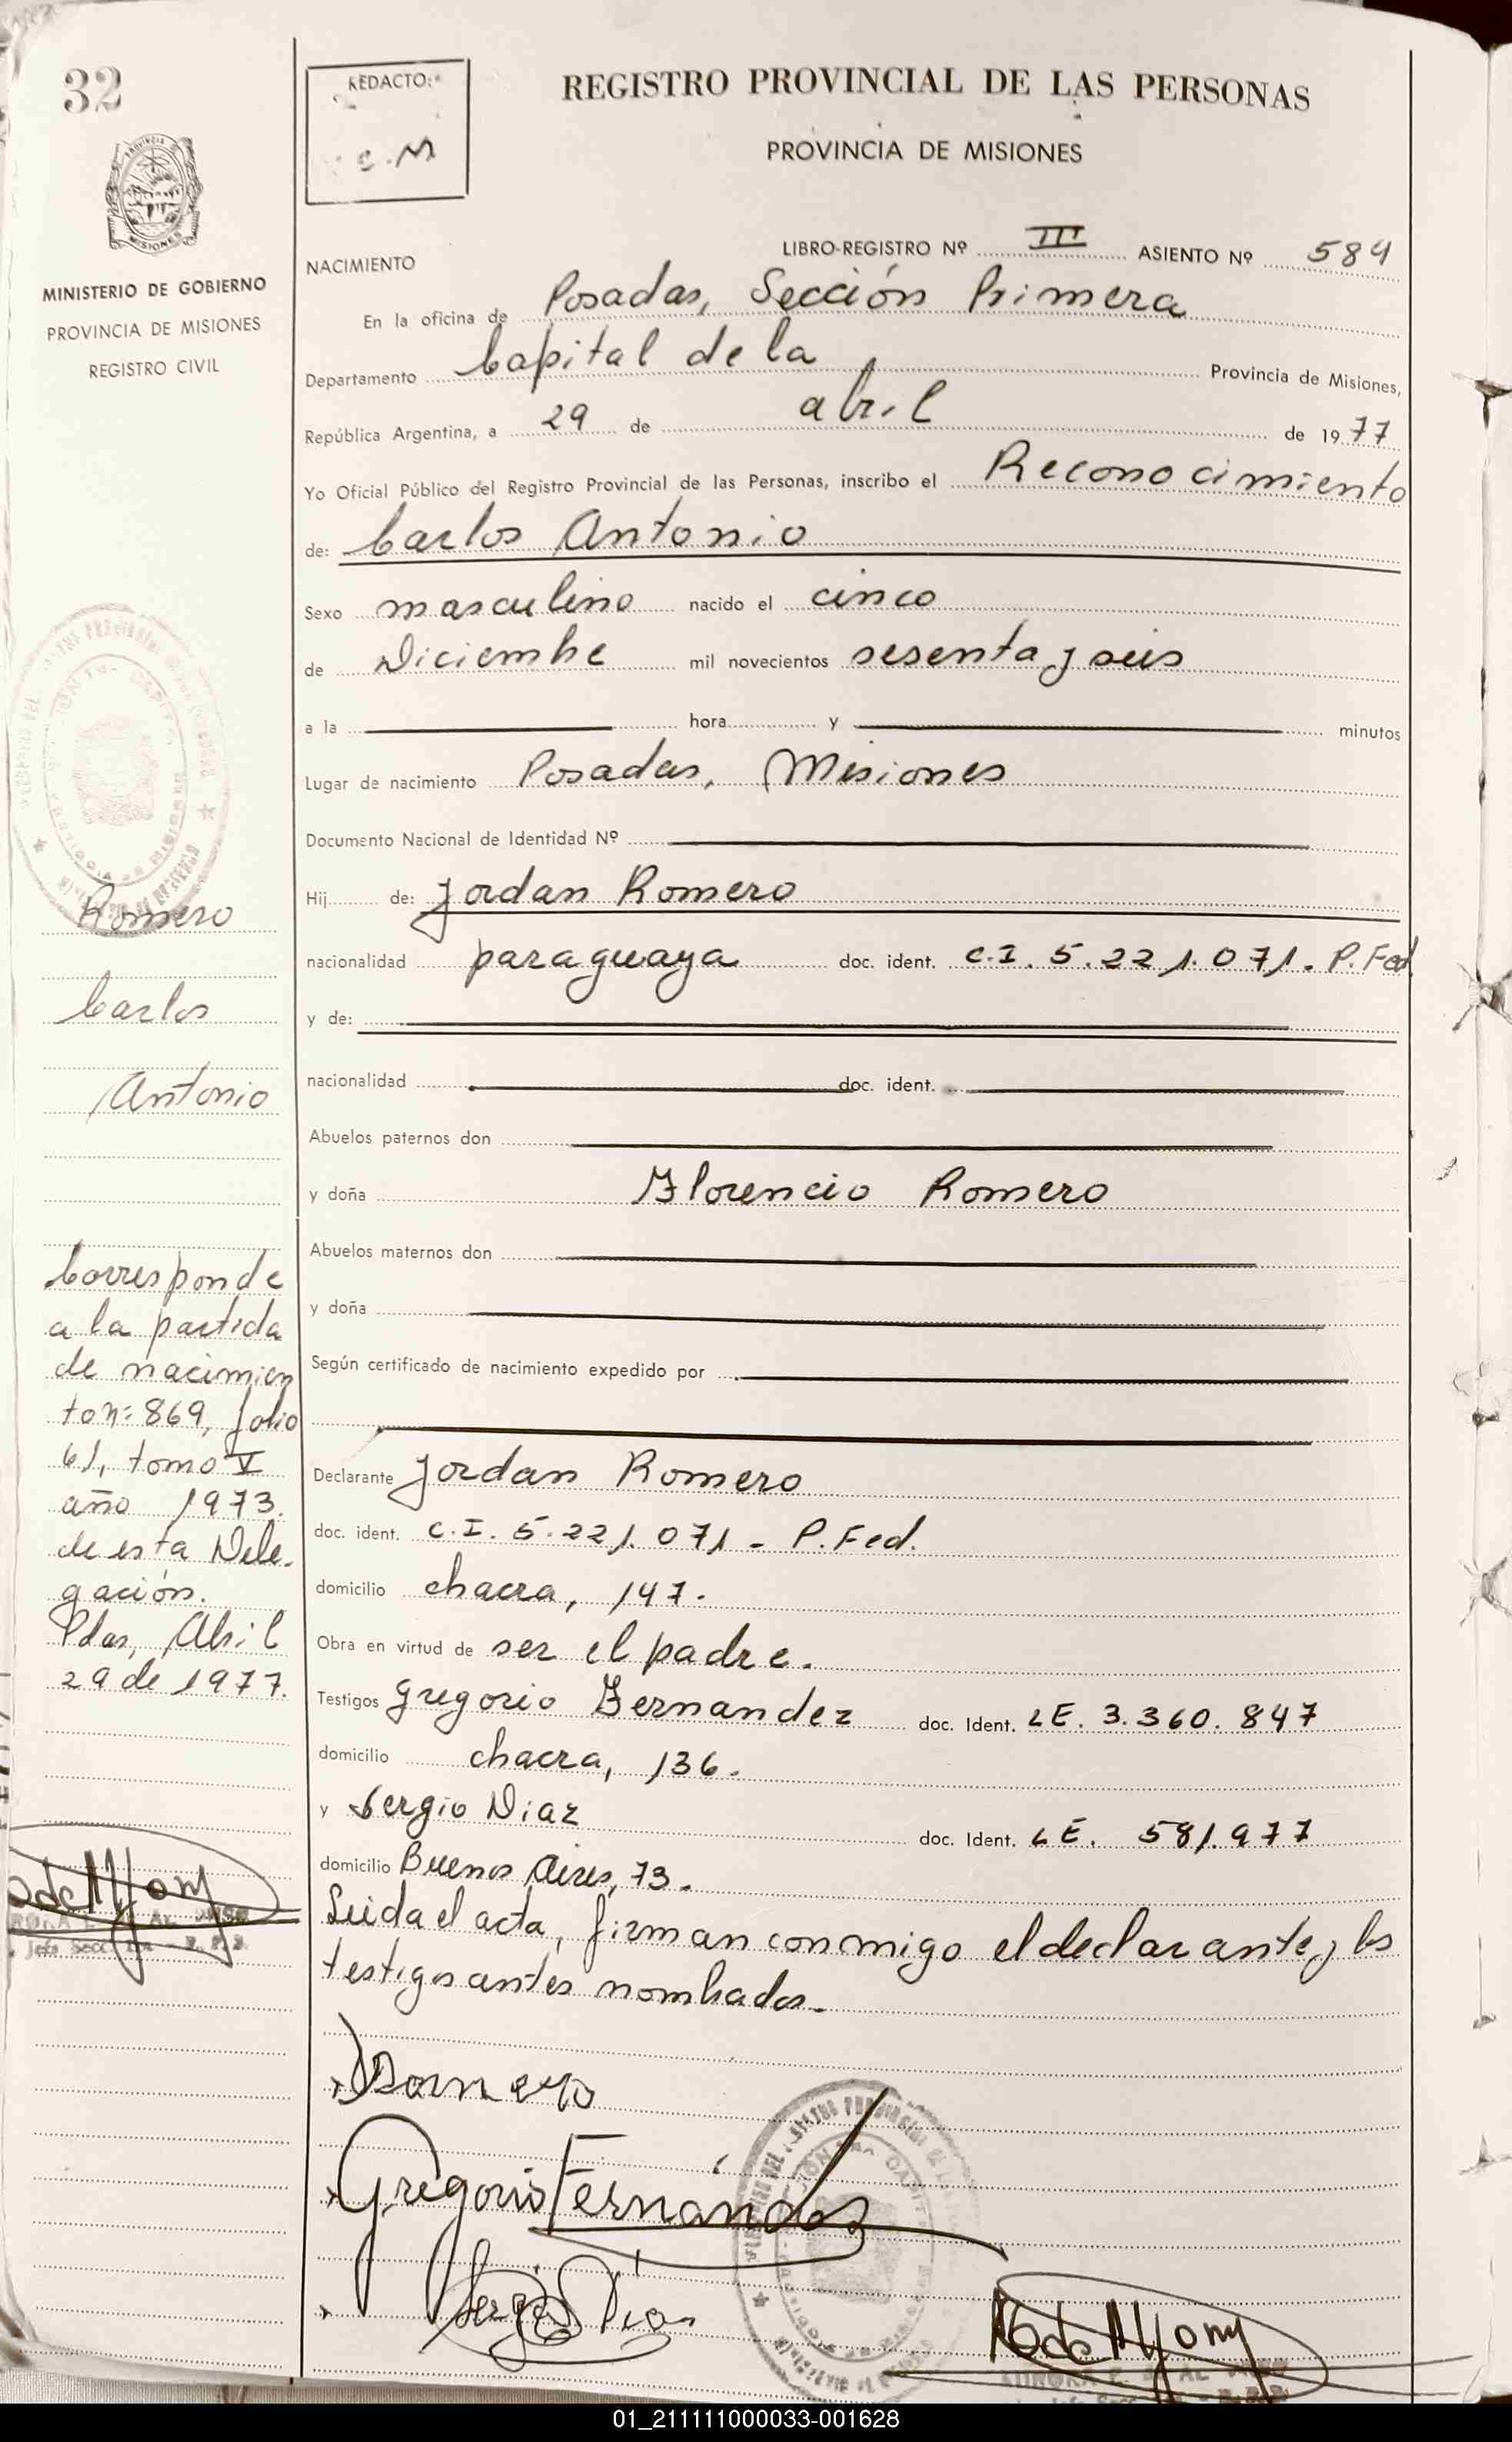 32
REDACTO:
C.M
REGISTRO PROVINCIAL DE LAS PERSONAS
PROVINCIA DE MISIONES
MISIONES
MINISTERIO DE GOBIERNO
PROVINCIA DE MISIONES
REGISTRO CIVIL
NACIMIENTO
LIBRO-REGISTRO Nº III ASIENTO Nº 584
En la oficina de Posadas, Sección Primera
Departamento Capital de la Provincia de Misiones,
República Argentina, a 29 de abril de 1977
Yo Oficial Público del Registro Provincial de las Personas, inscribo el Reconocimiento
de: Carlos Antonio
Sexo masculino nacido el cinco
de Diciembre mil novecientos sesenta y seis
a la hora y minutos
Lugar de nacimiento Posadas, Misiones
Documento Nacional de Identidad Nº
Hij de: Jordan Romero
nacionalidad paraguaya doc. ident. C.I. 5.221.071. P.Fed
y de:
nacionalidad doc. ident.
Abuelos paternos don
y doña Florencio Romero
Abuelos maternos don
y doña
Según certificado de nacimiento expedido por
Declarante Jordan Romero
doc. ident. C.I. 5.221.071 - P.Fed.
domicilio chacra, 147.
Obra en virtud de ser el padre.
Testigos Gregorio Fernandez doc. Ident. LE. 3.360.847
domicilio chacra, 136.
y Sergio Diaz doc. Ident. LE. 581.977
domicilio Buenos Aires, 73.
Leida el acta, firman conmigo el declarante y los
testigos antes nombrados.
Romero
Gregorio Fernández
Sergio Díaz
Romero
Carlos
Antonio
Corresponde
a la partida
de nacimien
to nº 869, folio
61, tomo V
año 1973.
de esta Dele-
gación.
Pdas, Abril
29 de 1977.
01_211111000033-001628